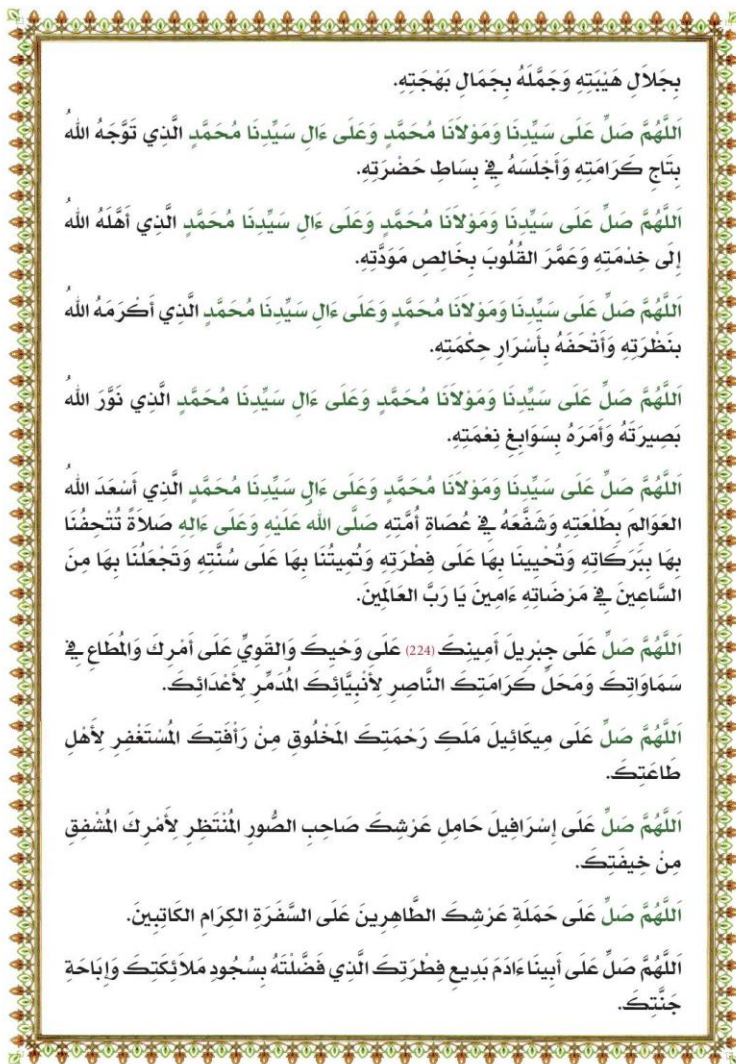 بِجَلَالِ هَيْبَتِهِ وَجَمَّلَهُ بِجَمَالِ بَهْجَتِهِ.
اَللَّهُمَّ صَلِّ عَلَى سَيِّدِنَا وَمَوْلَانَا مُحَمَّدٍ وَعَلَى ءَالِ سَيِّدِنَا مُحَمَّدٍ الَّذِي تَوَّجَهُ اللهُ
بِتَاجِ كَرَامَتِهِ وَأَجْلَسَهُ فِي بِسَاطِ حَضْرَتِهِ.
اَللَّهُمَّ صَلِّ عَلَى سَيِّدِنَا وَمَوْلَانَا مُحَمَّدٍ وَعَلَى ءَالِ سَيِّدِنَا مُحَمَّدٍ الَّذِي أَهَّلَهُ اللهُ
إِلَى خِدْمَتِهِ وَعَمَّرَ القُلُوبَ بِخَالِصِ مَوَدَّتِهِ.
اَللَّهُمَّ صَلِّ عَلَى سَيِّدِنَا وَمَوْلَانَا مُحَمَّدٍ وَعَلَى ءَالِ سَيِّدِنَا مُحَمَّدٍ الَّذِي أَكْرَمَهُ اللهُ
بِنَظْرَتِهِ وَأَتْحَفَهُ بِأَسْرَارِ حِكْمَتِهِ.
اَللَّهُمَّ صَلِّ عَلَى سَيِّدِنَا وَمَوْلَانَا مُحَمَّدٍ وَعَلَى ءَالِ سَيِّدِنَا مُحَمَّدٍ الَّذِي نَوَّرَ اللهُ
بَصِيرَتَهُ وَأَمَرَهُ بِسَوَابِغِ نِعْمَتِهِ.
اَللَّهُمَّ صَلِّ عَلَى سَيِّدِنَا وَمَوْلَانَا مُحَمَّدٍ وَعَلَى ءَالِ سَيِّدِنَا مُحَمَّدٍ الَّذِي أَسْعَدَ اللهُ
العَوَالِمَ بِطَلْعَتِهِ وَشَفَّعَهُ فِي عُصَاةِ أُمَّتِهِ صَلَّى الله عَلَيْهِ وَعَلَى ءَالِهِ صَلَاةً تُتْحِفُنَا
بِهَا بِبَرَكَاتِهِ وَتُحْيِينَا بِهَا عَلَى فِطْرَتِهِ وَتُمِيتُنَا بِهَا عَلَى سُنَّتِهِ وَتَجْعَلُنَا بِهَا مِنَ
السَّاعِينَ فِي مَرْضَاتِهِ ءَامِينَ يَا رَبَّ العَالَمِينَ.
اَللَّهُمَّ صَلِّ عَلَى جِبْرِيلَ أَمِينِكَ (224) عَلَى وَحْيِكَ وَالقَوِيِّ عَلَى أَمْرِكَ وَالمُطَاعِ فِي
سَمَاوَاتِكَ وَمَحَلِّ كَرَامَتِكَ النَّاصِرِ لِأَنْبِيَّائِكَ المُدَمِّرِ لِأَعْدَائِكَ.
اَللَّهُمَّ صَلِّ عَلَى مِيكَائِيلَ مَلَكِ رَحْمَتِكَ المَخْلُوقِ مِنْ رَأْفَتِكَ المُسْتَغْفِرِ لِأَهْلِ
طَاعَتِكَ.
اَللَّهُمَّ صَلِّ عَلَى إِسْرَافِيلَ حَامِلِ عَرْشِكَ صَاحِبِ الصُّورِ المُنْتَظِرِ لِأَمْرِكَ المُشْفِقِ
مِنْ خِيفَتِكَ.
اَللَّهُمَّ صَلِّ عَلَى حَمَلَةِ عَرْشِكَ الطَّاهِرِينَ عَلَى السَّفَرَةِ الكِرَامِ الكَاتِبِينَ.
اَللَّهُمَّ صَلِّ عَلَى أَبِينَا ءَادَمَ بَدِيعِ فِطْرَتِكَ الَّذِي فَضَّلْتَهُ بِسُجُودِ مَلَائِكَتِكَ وَإِبَاحَةِ
جَنَّتِكَ.